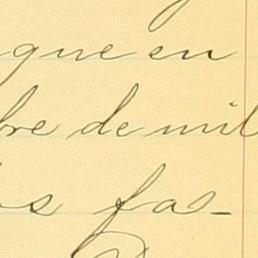 que en
bre de mil
os fas-